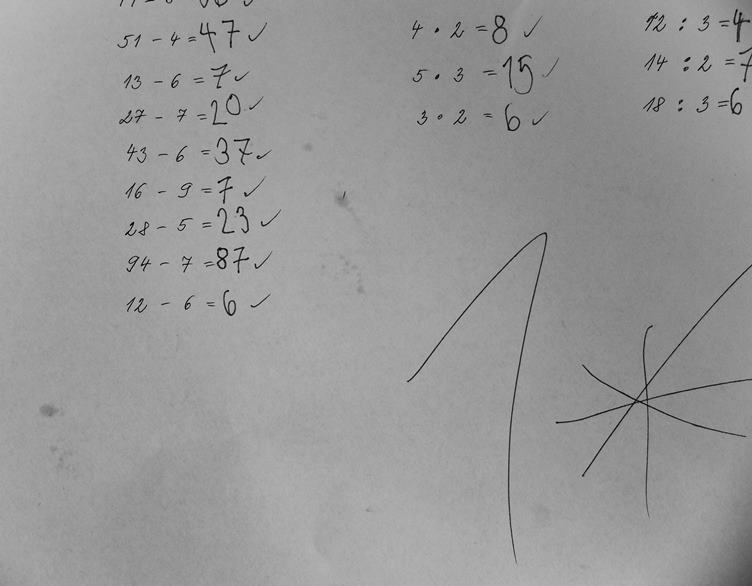 51 - 4 = 47 ✓
13 - 6 = 7 ✓
27 - 7 = 20 ✓
43 - 6 = 37 ✓
16 - 9 = 7 ✓
28 - 5 = 23 ✓
94 - 7 = 87 ✓
12 - 6 = 6 ✓
4 · 2 = 8 ✓
5 · 3 = 15 ✓
3 · 2 = 6 ✓
12 : 3 = 4
14 : 2 = 7
18 : 3 = 6
1*